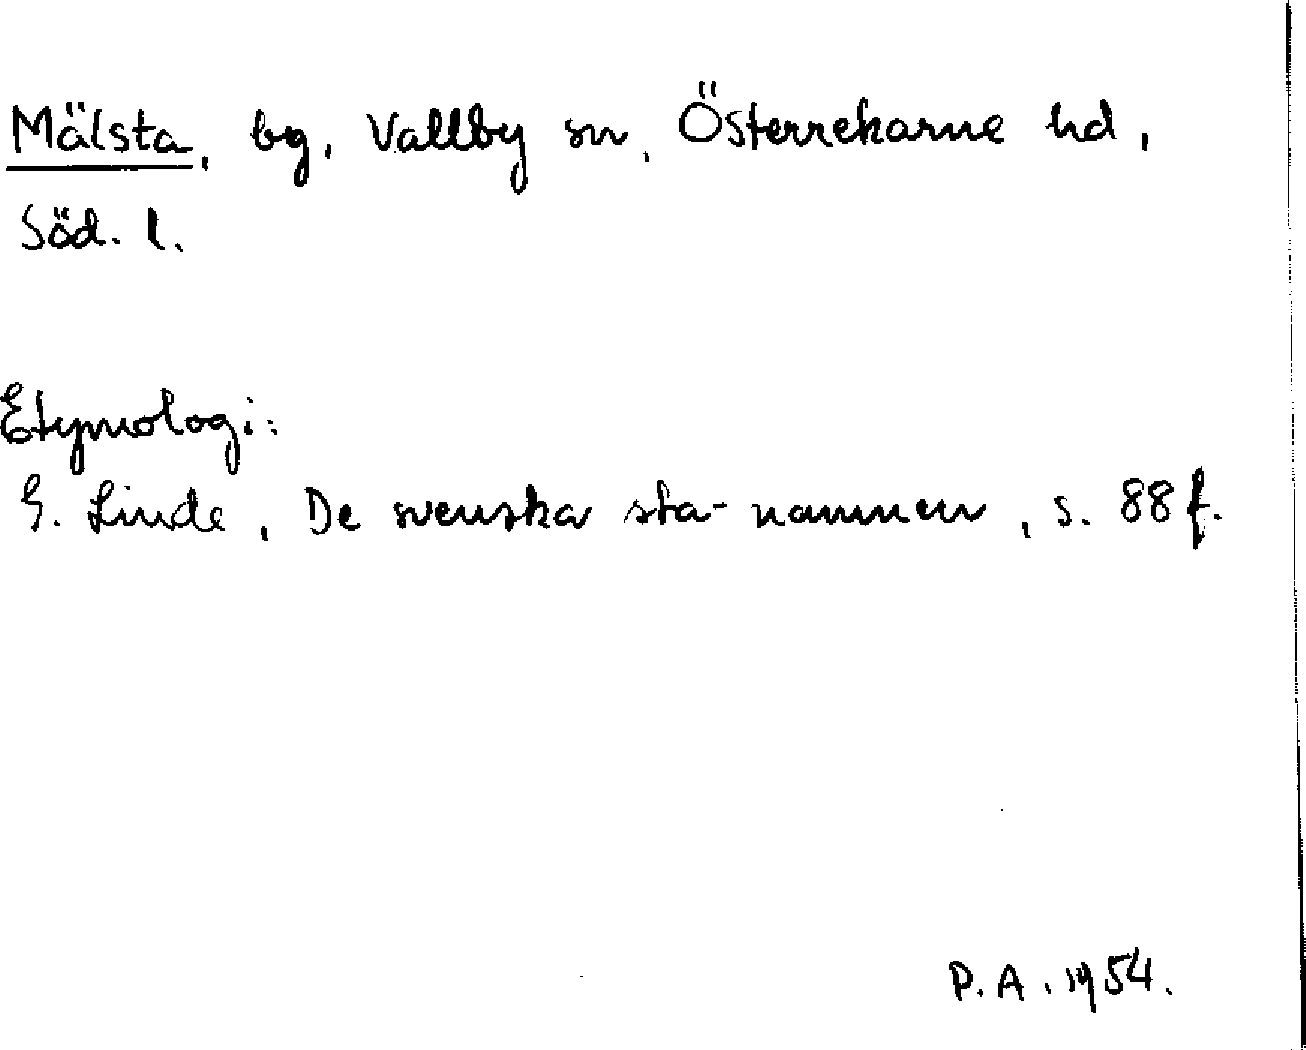 Mälsta, bg, Vallby sn, Österrekarne hd,
Söd. l.
Etymologi:
G. Linde, De svenska sta-namnen, s. 88 f.
P. A. 1954.